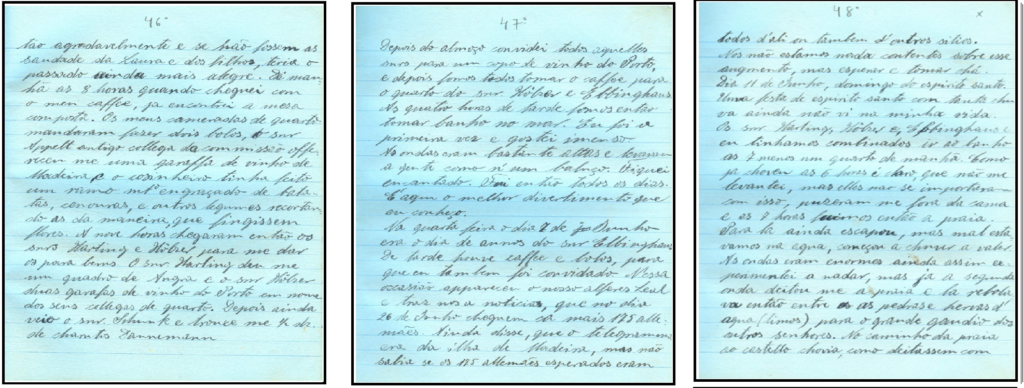 46º
tão agradavelmente e se não fossem as
saudade da Laura e dos filhos, teria o
passado ainda mais alegre. De man-
hã as 8 horas quando cheguei com
o meu caffee, ja encontrei a mesa
composta. Os meus camerades de quarto
mandaram fazer dois bolos, o snr
Appelt antigo collega da commissão offe-
receu me uma garaffa de vinho de
Madeira e o cosinheiro tinha feito
um ramo mtº engraçado de bata-
tas, cenouras, e outros legumes recortan-
do as da maneira, que fingissem
flores. A nove horas chegaram então os
snrs Harting e Hölser para me dar
os para bens. O snr Harting deu me
um quadro de Angra e o snr Hölser
duas garafas de vinho do Porto em nome
dos seus collegas de quarto. Depois ainda
veio o snr Schunk e trouce me ½ dz.
de charutos Dannemann
47º
Depois do almoço convidei todos aquelles
snrs para um copo de vinho do Porto,
e depois fomos todos tomar o caffee para
o quarto do snr Hölser e Ebbinghaus
As quatro horas de tarde fomos então
tomar banho no mar. Eu foi a
primeira vez e gostei imenso
As ondas eram bastante altas e levavam
a gente como n'um balouço. Fiquei
encantado. Vou então todos os dias.
E aqui o melhor divertimento que
eu conheço.
Na quarta feira o dia 7 de Junho
era o dia de annos do snr Ebbinghaus
De tarde houve caffee e bolos, para
que eu tambem foi convidado. Nessa
occasião appareceu o nosso alferes Leal
e trez nos a noticia, que no dia
26 de Junho cheguem cá mais 175 alle-
mães. Ainda disse, que o telegramma
era da ilha de Madeira, mas não
sabia se os 175 allemães esperados eram
48º
x
todos d'ali ou tambem d'outros sitios.
Nos não estamos nada contentes sobre esse
augmento, mas esperar e tomar chá.
Dia 11 de Junho, domingo de espirito santo.
Uma feste de espirito santo com tanta chu
va ainda não vi na minha vida.
Os snr Harting, Hölser e, Ebbinghaus e
eu tinhamos combinados ir ao banho
as 7 menos um quarto de manhã. Como
ja choveu as 6 horas é claro, que não me
levantei, mas elles não se importaram
com isso, puzeram me fora da cama
e as 7 horas fuimos então a praia.
Para lá ainda escapou, mas mal está-
vamos na agua, começou a chover a valer.
As ondas eram enormes ainda assim ex-
perimentei a nadar, mas já a segunda
onda deitou me a praia e la rebola
va então entre as pedras e hervas d'
agua (limos) para o grande gaudio dos
outros senhores. No caminho da praia
ao castello chovia, como deitassem com